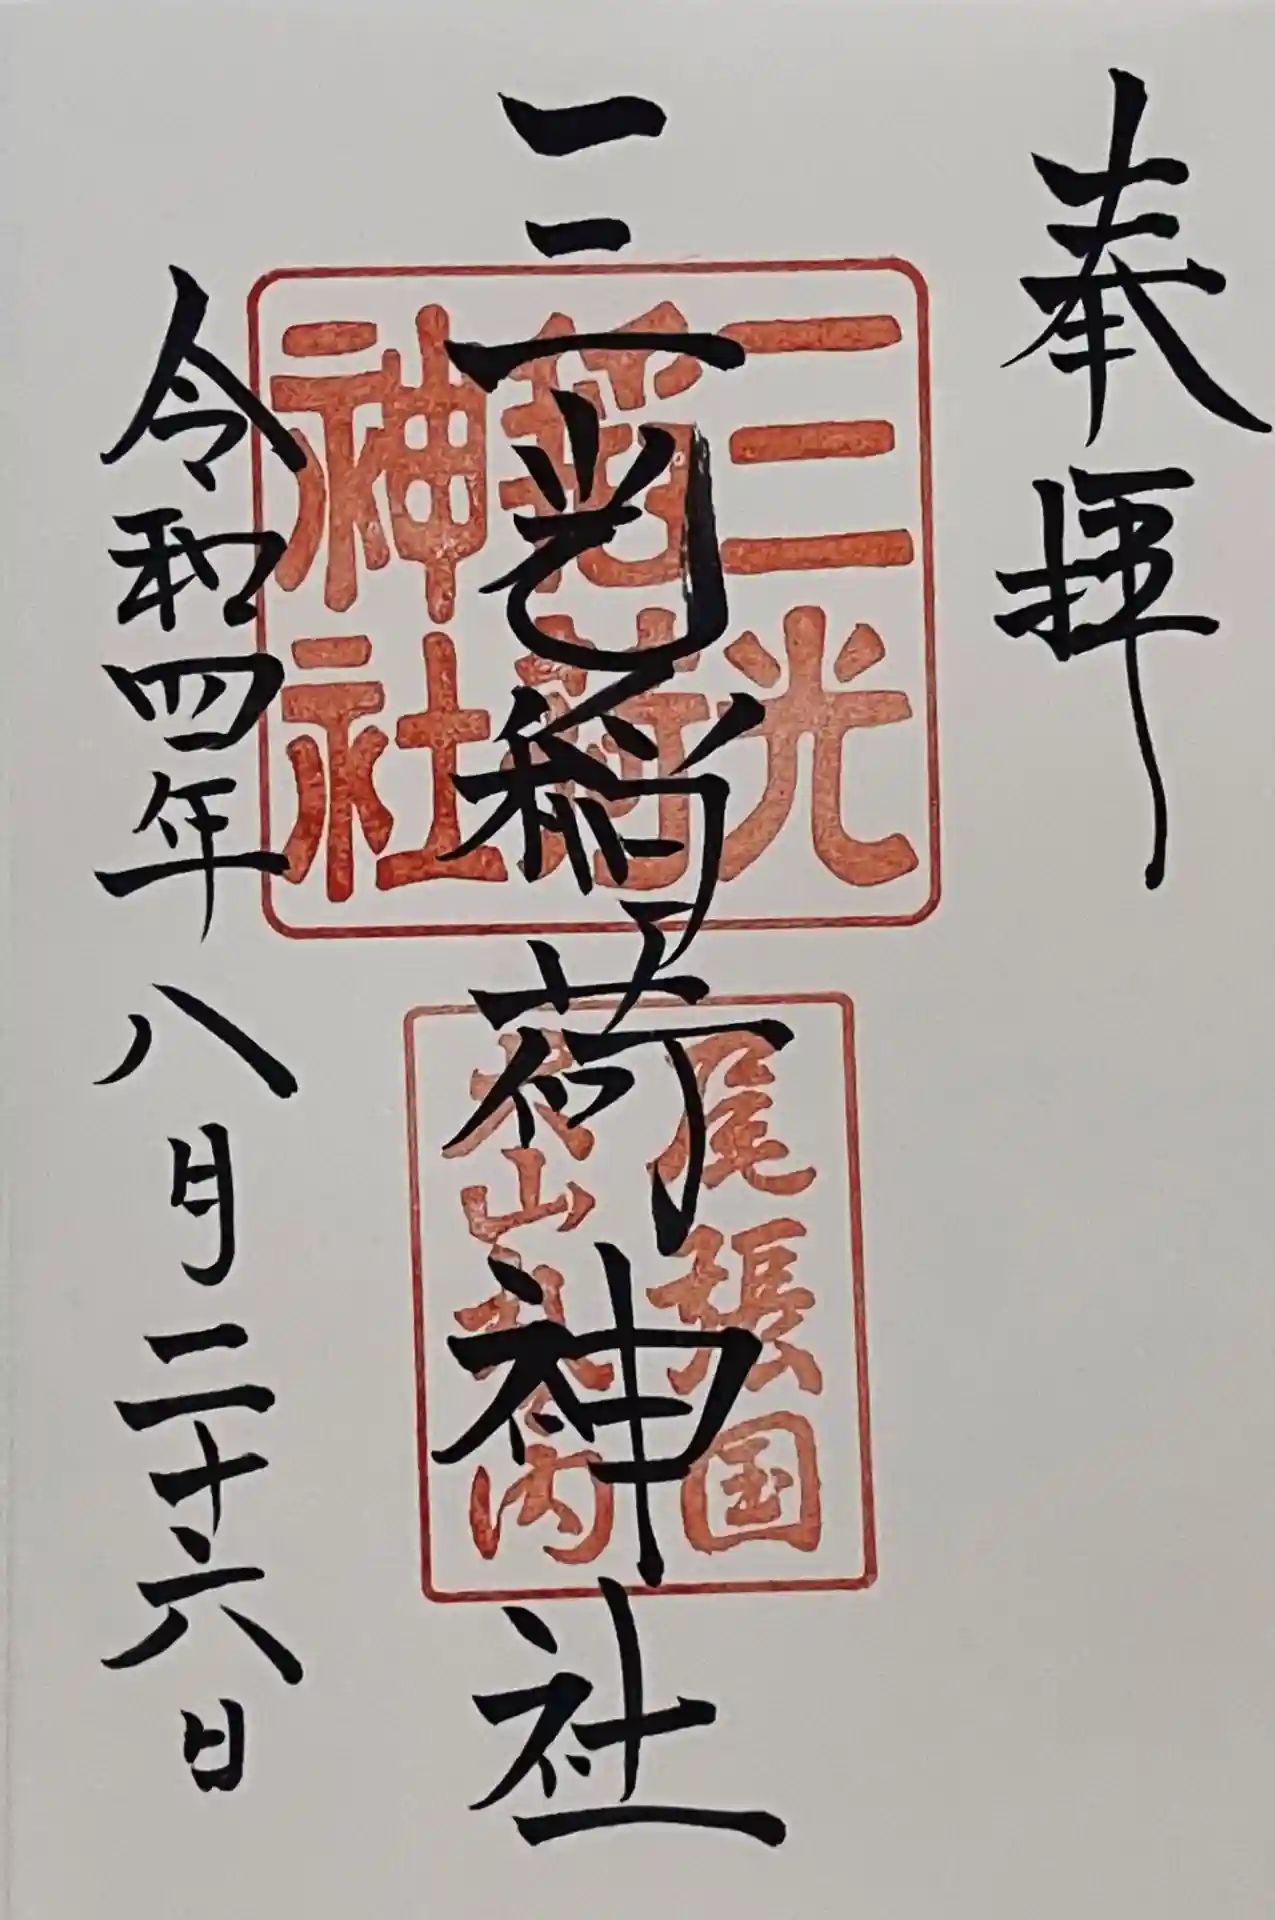 奉拝
三光稲荷神社
三光
稲荷
神社
尾張国
犬山城内
令和四年八月二十六日